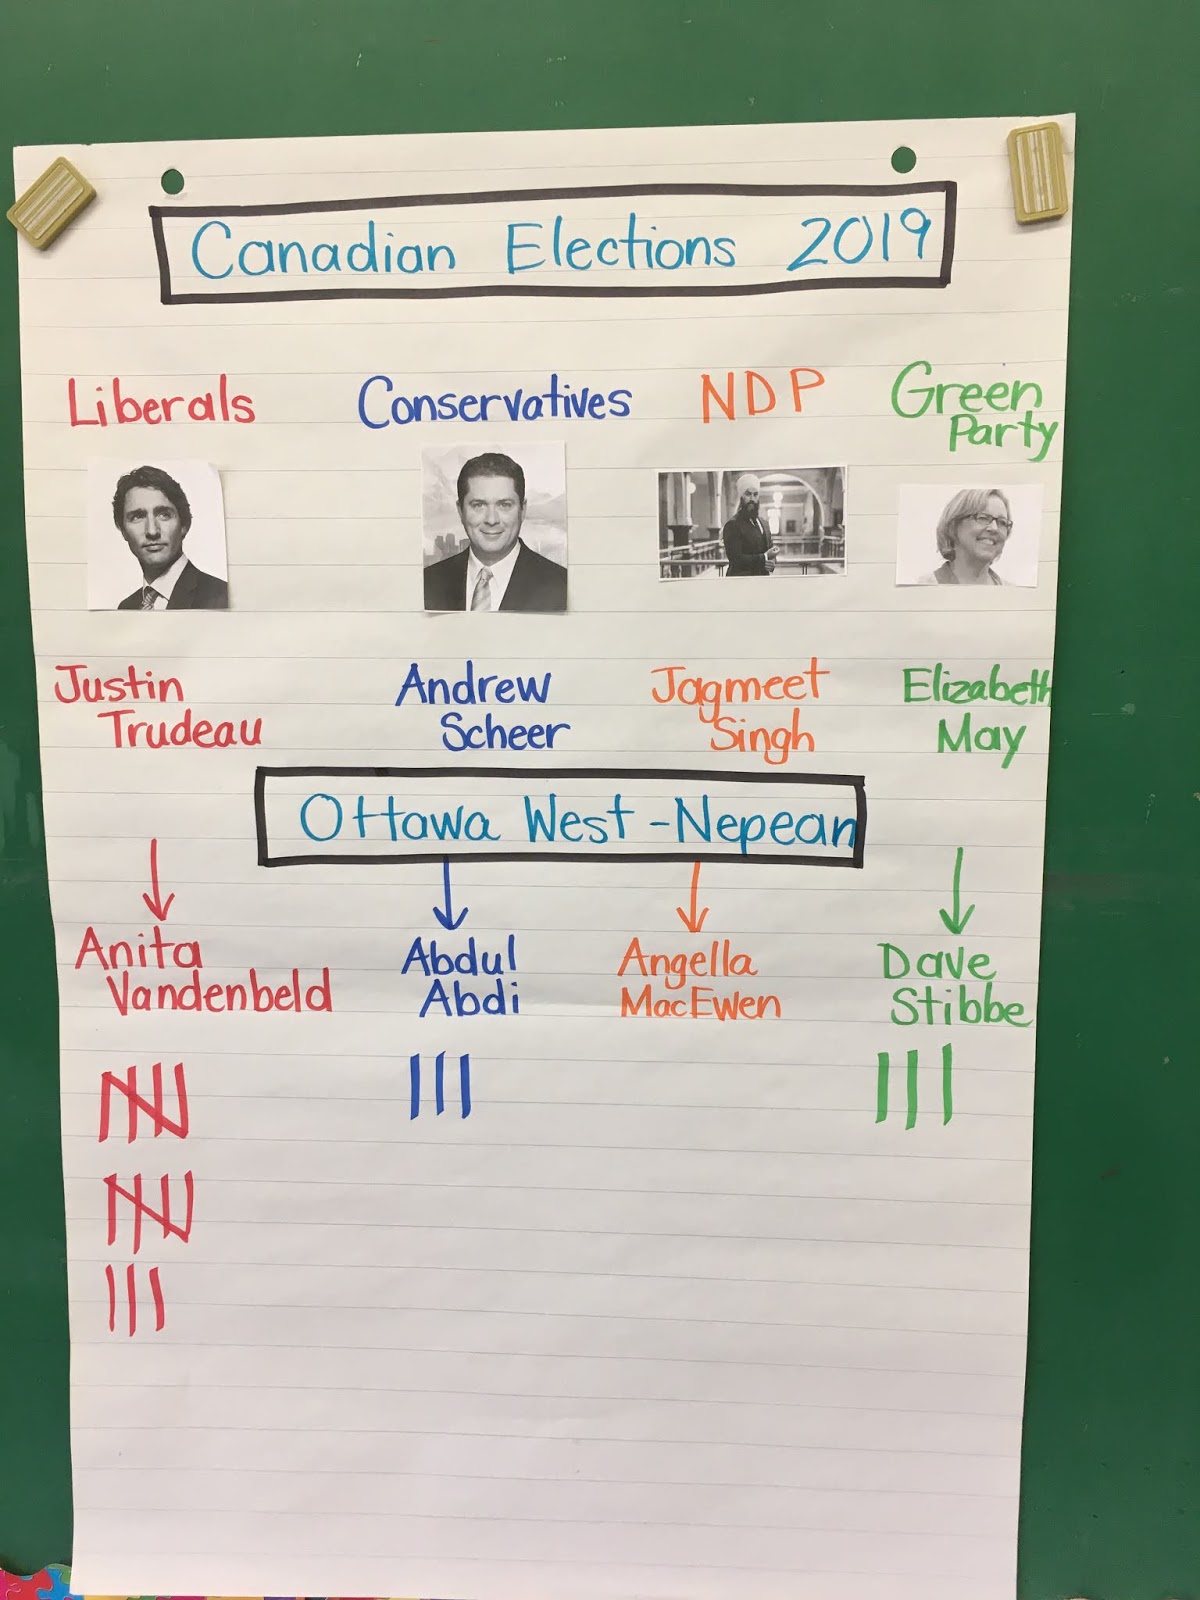 Canadian Elections 2019
Liberals
Conservatives
NDP
Green
Party
Justin
Trudeau
Andrew
Scheer
Jagmeet
Singh
Elizabeth
May
Ottawa West-Nepean
Anita
Vandenbeld
Abdul
Abdi
Angella
MacEwen
Dave
Stibbe